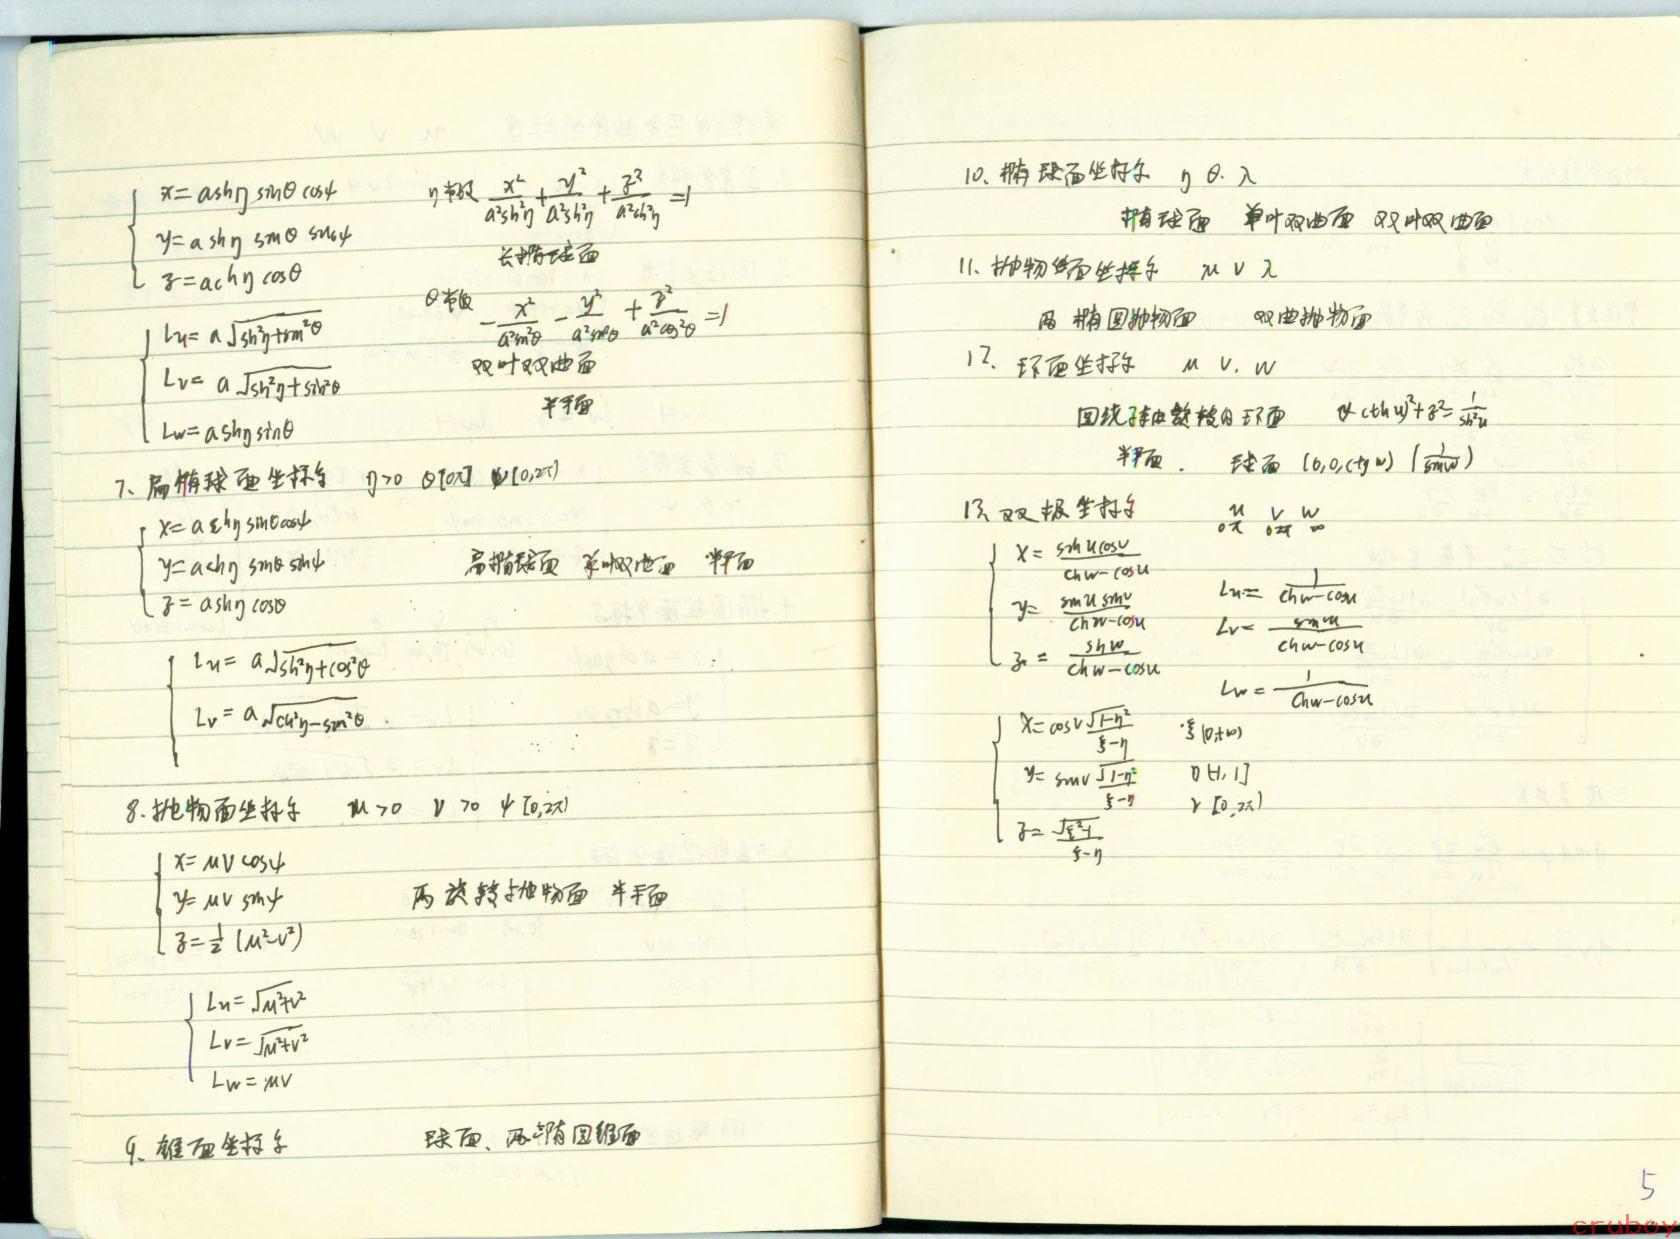 x = a shη sinθ cosψ
y = a shη sinθ sinψ
z = a chη cosθ
η等于 x²/a²sh²η + y²/a²sh²η + z²/a²ch²η = 1
长椭球面
Lu = a√(sh²η+sin²θ)
Lv = a√(sh²η+sin²θ)
Lw = a shη sinθ
-x²/a²sin²θ - y²/a²sin²θ + z²/a²cos²θ = 1
双叶双曲面
半平面
7、扁椭球面坐标系 η>0 θ[0π] ψ[0,2π)
x = a chη sinθ cosψ
y = a chη sinθ sinψ
z = a shη cosθ
扁椭球面 单叶双曲面 半平面
Lu = a√(sh²η+cos²θ)
Lv = a√(ch²η-sin²θ)
8、抛物面坐标系 μ>0 ν>0 ψ[0,2π)
x = μν cosψ
y = μν sinψ
z = 1/2 (μ²-ν²)
两旋转抛物面 半平面
Lu = √(μ²+ν²)
Lv = √(μ²+ν²)
Lw = μν
9、锥面坐标系 球面、两椭圆锥面
10、椭球面坐标系 η θ. λ
椭球面 单叶双曲面 双叶双曲面
11、抛物面坐标系 μ ν λ
两椭圆抛物面 双曲抛物面
12、环面坐标系 u v. w
回绕z轴旋转的环面 cthu)²+z² = 1/sh²u
半平面. 球面 (0,0,ctgw) (1/sinw)
13、双极坐标系 u v w
0π 02π ∞
x = sinu cosv/(chw-cosu)
y = sinu sinv/(chw-cosu)
z = shw/(chw-cosu)
Lu = 1/(chw-cosu)
Lv = sinu/(chw-cosu)
Lw = 1/(chw-cosu)
x = cosv √(1-η²)/(ξ-η)
y = sinv √(1-η²)/(ξ-η)
z = √(ξ²-1)/(ξ-η)
ξ(0,+∞)
η[-1,1]
v[0,2π)
5
cruboy